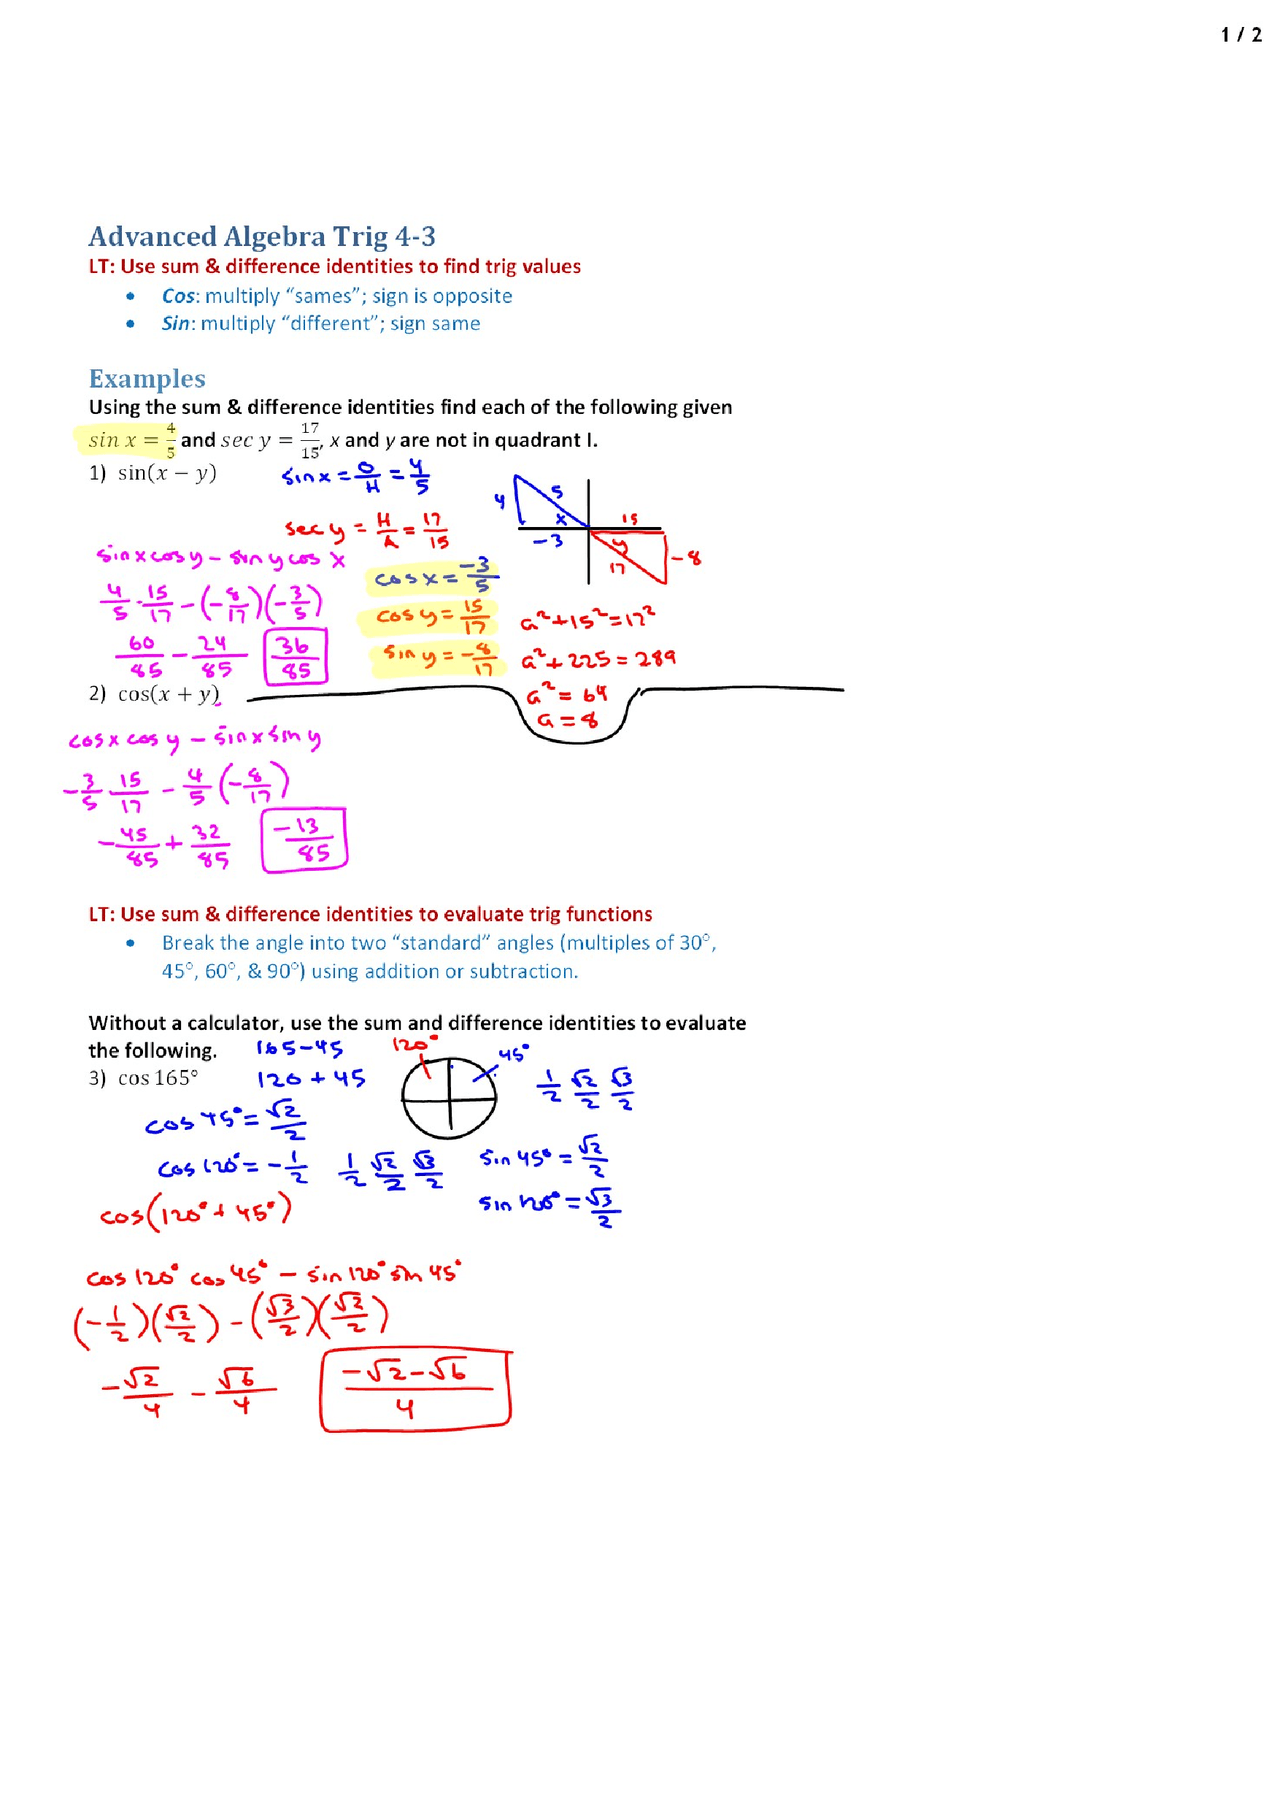 1 / 2
Advanced Algebra Trig 4-3
LT: Use sum & difference identities to find trig values
• Cos: multiply “sames”; sign is opposite
• Sin: multiply “different”; sign same
Examples
Using the sum & difference identities find each of the following given
sin x = 4/5 and sec y = 17/15, x and y are not in quadrant I.
1) sin(x − y)
sin x = O/H = 4/5
4 5 x -3
15 y 17 -8
sec y = H/A = 17/15
sin x cos y - sin y cos x
cos x = -3/5
4/5 · 15/17 - (-8/17)(-3/5)
cos y = 15/17
a² + 15² = 17²
60/85 - 24/85 36/85
sin y = -8/17
a² + 225 = 289
a² = 64
a = 8
2) cos(x + y)
cos x cos y - sin x sin y
-3/5 15/17 - 4/5 (-8/17)
-45/85 + 32/85 -13/85
LT: Use sum & difference identities to evaluate trig functions
• Break the angle into two “standard” angles (multiples of 30°,
45°, 60°, & 90°) using addition or subtraction.
Without a calculator, use the sum and difference identities to evaluate
the following. 165-45 120° 45°
3) cos 165° 120 + 45 1/2 √2/2 √3/2
cos 45° = √2/2
cos 120° = -1/2 1/2 √2/2 √3/2 sin 45° = √2/2
cos(120° + 45°) sin 120° = √3/2
cos 120° cos 45° - sin 120° sin 45°
(-1/2)(√2/2) - (√3/2)(√2/2)
-√2/4 - √6/4 -√2-√6/4